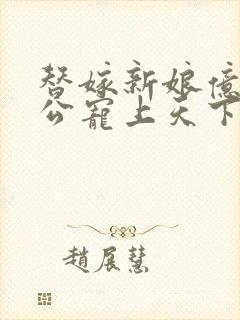 替嫁新娘億
公寵上天下
趙展慧